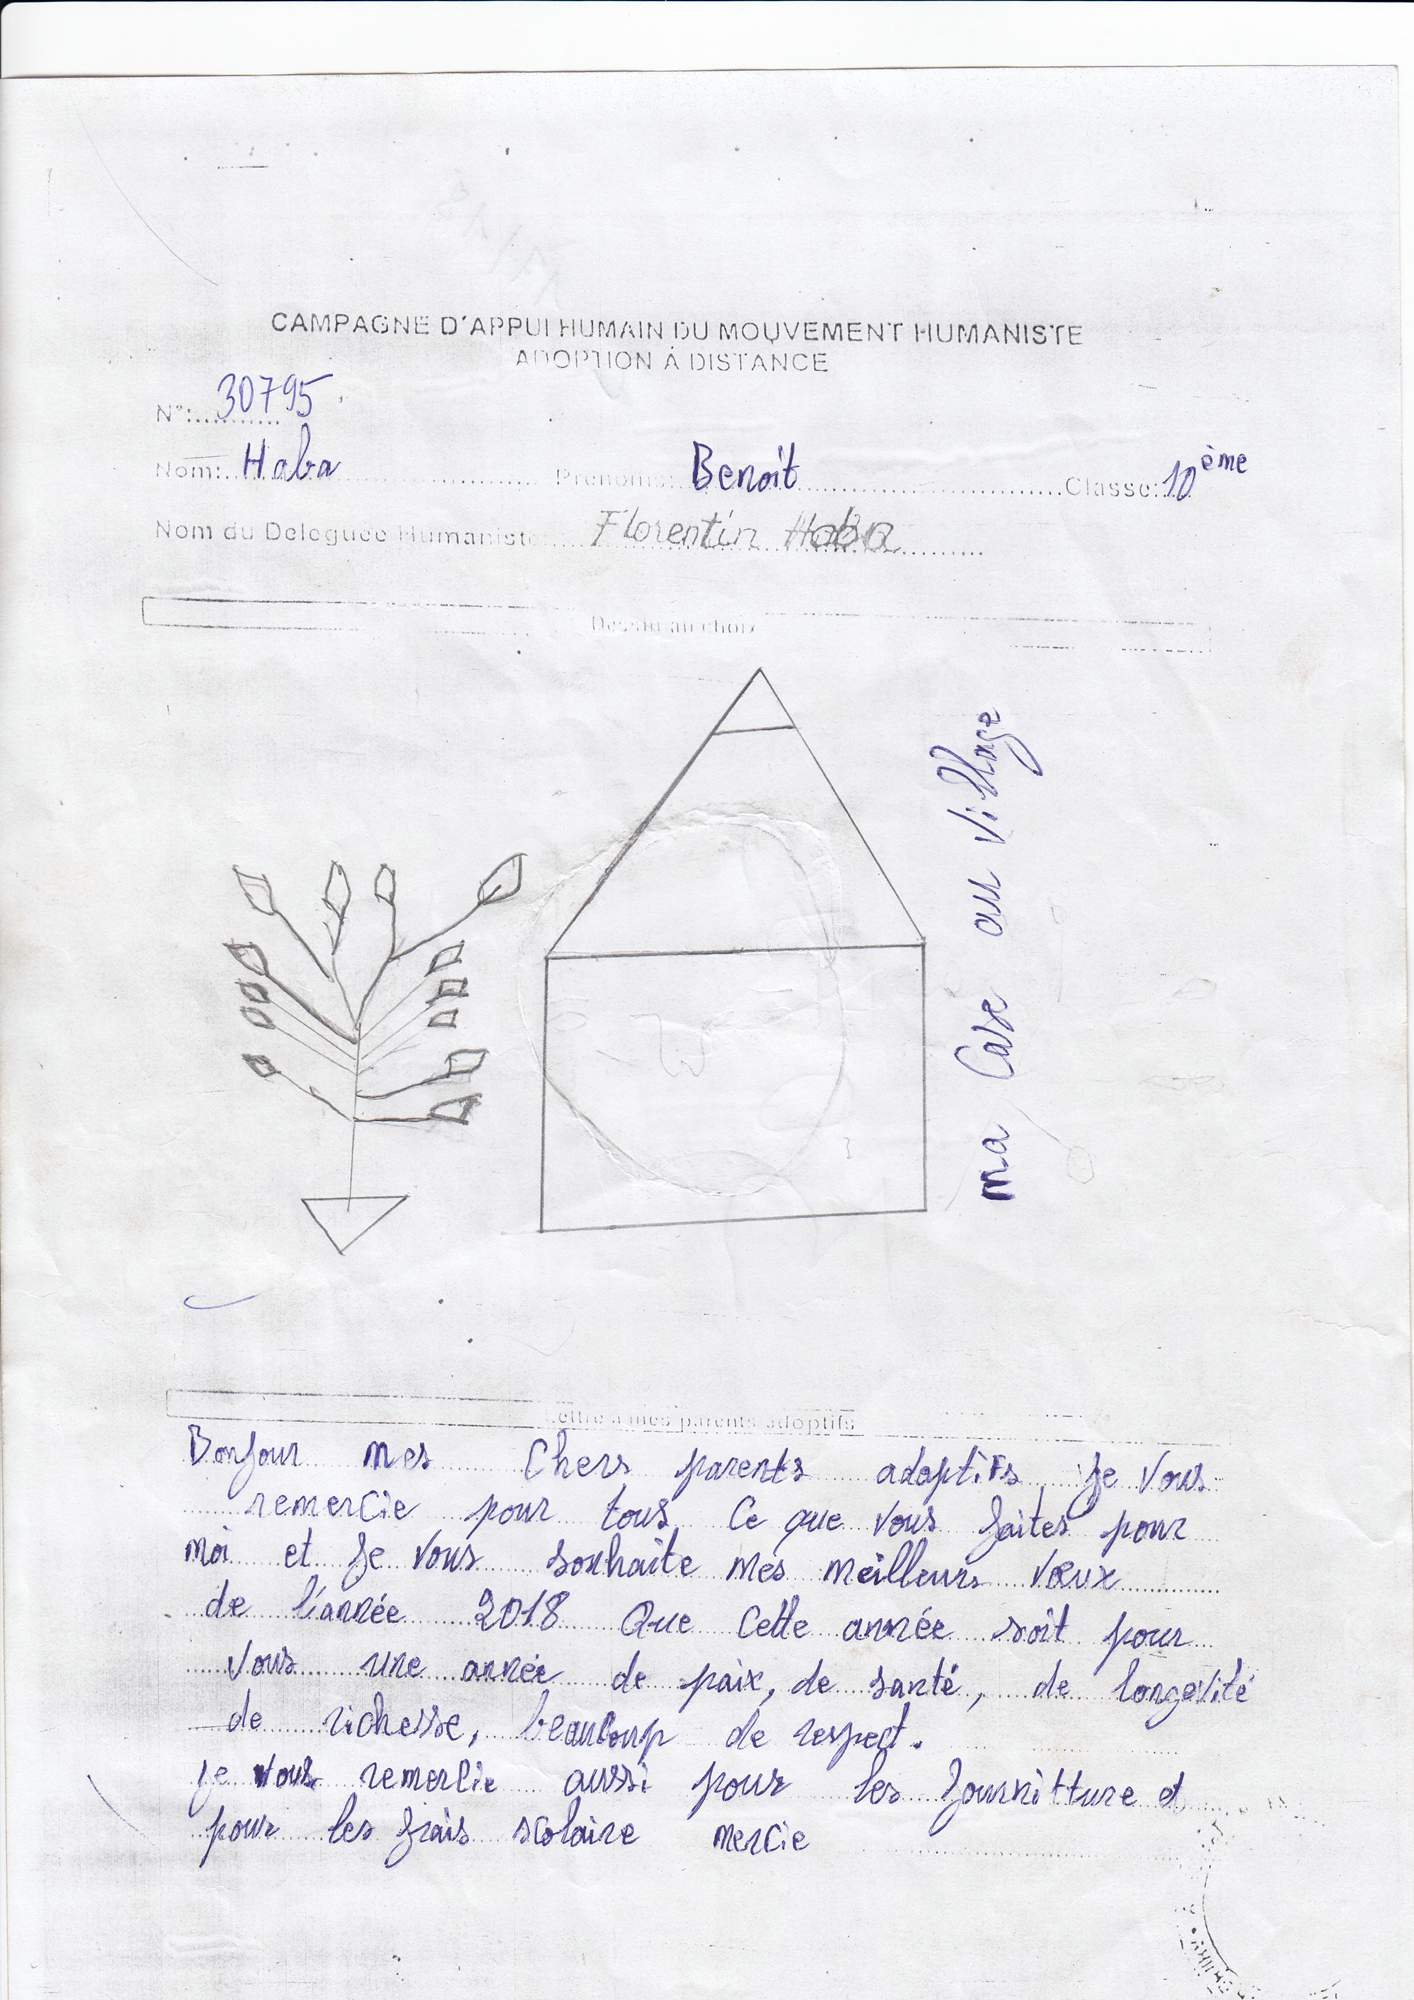 CAMPAGNE D'APPUI HUMAIN DU MOUVEMENT HUMANISTE
ADOPTION À DISTANCE
N°: 30795
Nom: Haba Prénoms: Benoît Classe: 10ème
Nom du Deleguée Humaniste: Florentin Haba
Dessin au choix
ma Case au village
Lettre à mes parents adoptifs
Bonjour mes Chers parents adoptifs, je vous
remercie pour tous ce que vous faites pour
moi et je vous souhaite mes meilleurs vœux
de l'année 2018 Que cette année soit pour
vous une année de paix, de santé, de longevité
de richesse, beaucoup de respect.
je vous remercie aussi pour les fournitture et
pour les frais scolaire mercie